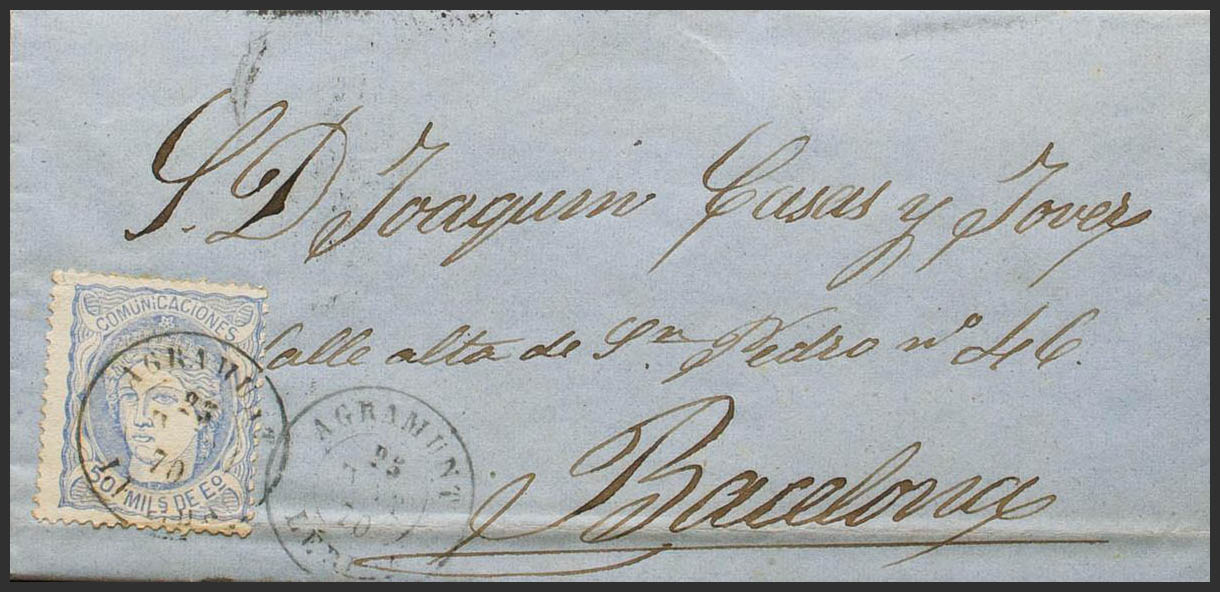 S. D Joaquin Casas y Jover
Calle alta de Sn Pedro nº 46.
Bacelona
COMUNICACIONES
50 MILS DE Eo.
AGRAMUNT
25
70
AGRAMUNT
25
70
LERI